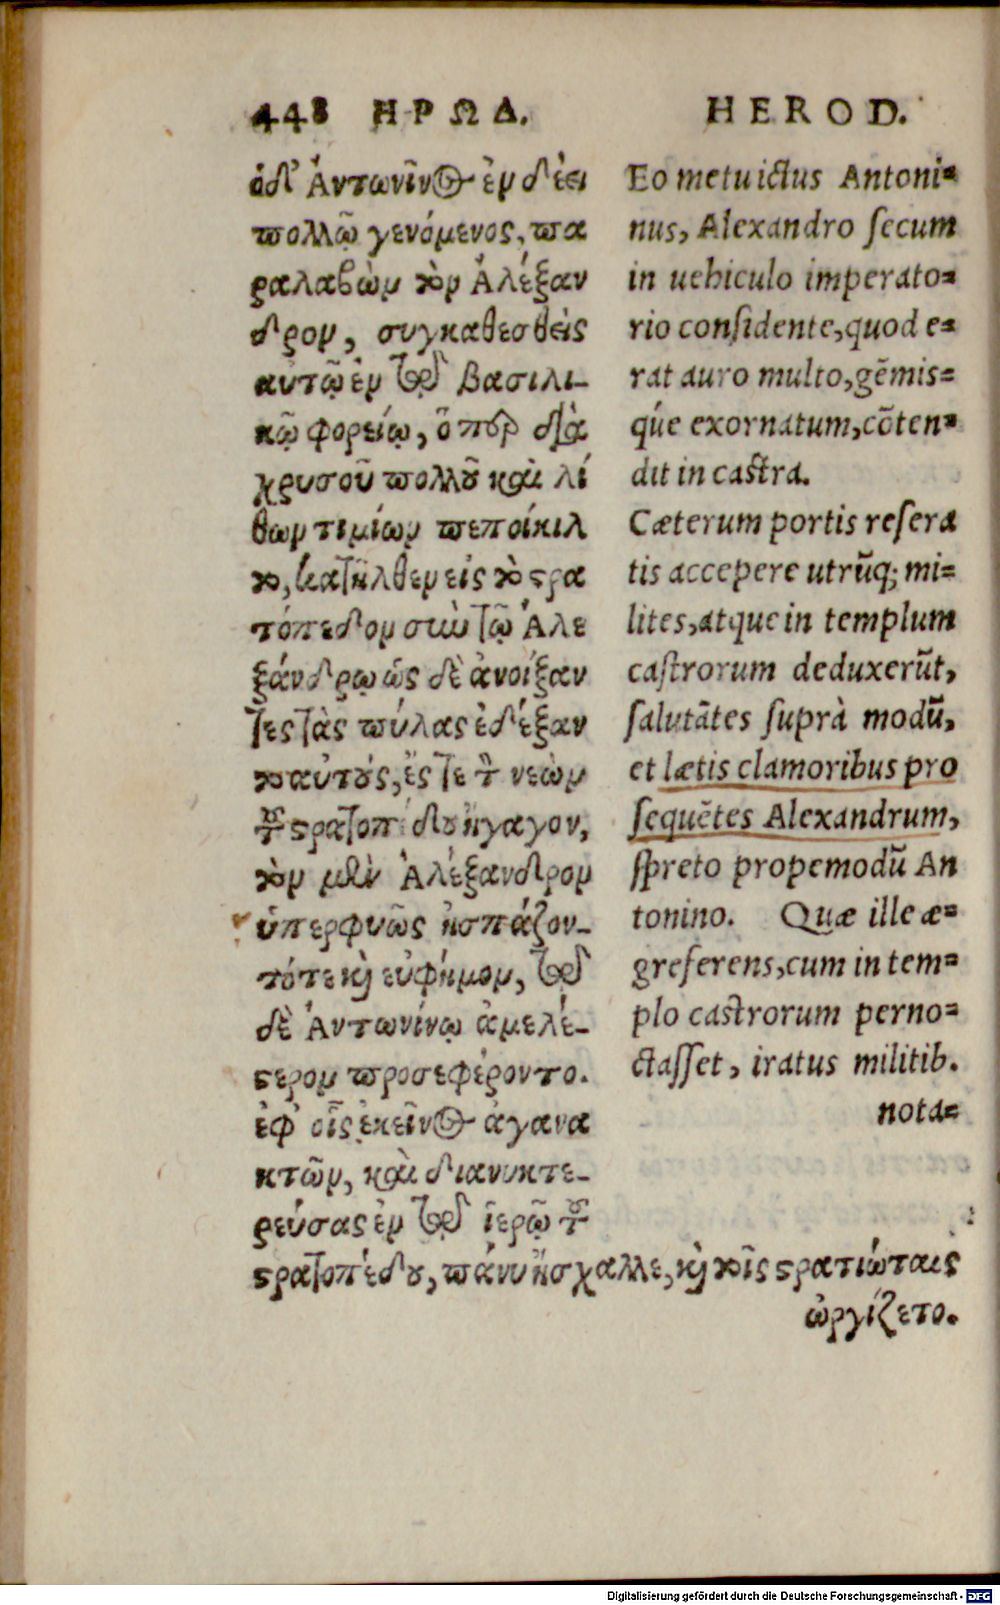 448 ΗΡΩΔ.
ὁδ' Ἀντωνῖνος ἐν δέει
πολλῷ γενόμενος, πα
ραλαβὼν τὸν Ἀλέξαν
δρον, συγκαθεσθεὶς
αὐτῷ ἐν τῷ βασιλι-
κῷ φορείῳ, ὅπερ διὰ
χρυσοῦ πολλοῦ καὶ λί
θων τιμίων πεποίκιλ
το, κατῆλθεν εἰς τὸ στρα
τόπεδον σὺν τῷ Ἀλε
ξάνδρῳ ὡς δὲ ἀνοίξαν
τες τὰς πύλας ἐδέξαν
το αὐτούς, ἔς τε τὸν νεὼν
τοῦ στρατοπέδου ἤγαγον,
τὸν μὲν Ἀλέξανδρον
ὑπερφυῶς ἠσπάζον-
τό τε καὶ εὐφήμον, τῷ
δὲ Ἀντωνίνῳ ἀμελέ-
στερον προσεφέροντο.
ἐφ' οἷς ἐκεῖνος ἀγανα
κτῶν, καὶ διανυκτε-
ρεύσας ἐν τῷ ἱερῷ τοῦ
στρατοπέδου, πάνυ ἤσχαλλε, καὶ τοῖς στρατιώταις
ὠργίζετο.
HEROD.
Eo metu ictus Antoni=
nus, Alexandro secum
in uehiculo imperato=
rio considente, quod e=
rat auro multo, gēmis=
q́ue exornatum, cōten=
dit in castra.
Cæterum portis resera
tis accepere utrūq; mi=
lites, atque in templum
castrorum deduxerūt,
salutātes suprà modū,
et lætis clamoribus pro
sequētes Alexandrum,
spreto propemodū An
tonino. Quæ ille æ=
greferens, cum in tem=
plo castrorum perno=
ctasset, iratus militib.
nota=
Digitalisierung gefördert durch die Deutsche Forschungsgemeinschaft - DFG